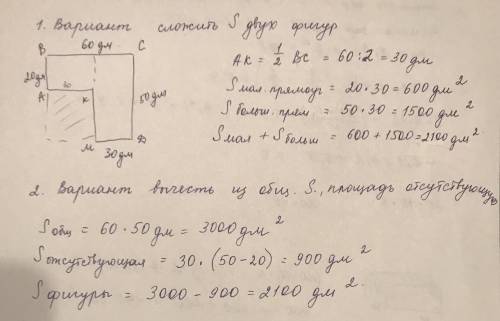 1. Вариант сложить S двух фигур
B 60 дм C
20 дм
30
A K
50 дм
M D
30 дм
AK = 1/2 BC = 60 : 2 = 30 дм
S мал. прямоуг = 20 · 30 = 600 дм²
S больш. прям = 50 · 30 = 1500 дм²
S мал + S больш = 600 + 1500 = 2100 дм²
2. Вариант вычесть из общ. S., площадь отсутствующую
S общ = 60 · 50 дм = 3000 дм²
S отсутствующая = 30 · (50 - 20) = 900 дм²
S фигуры = 3000 - 900 = 2100 дм².